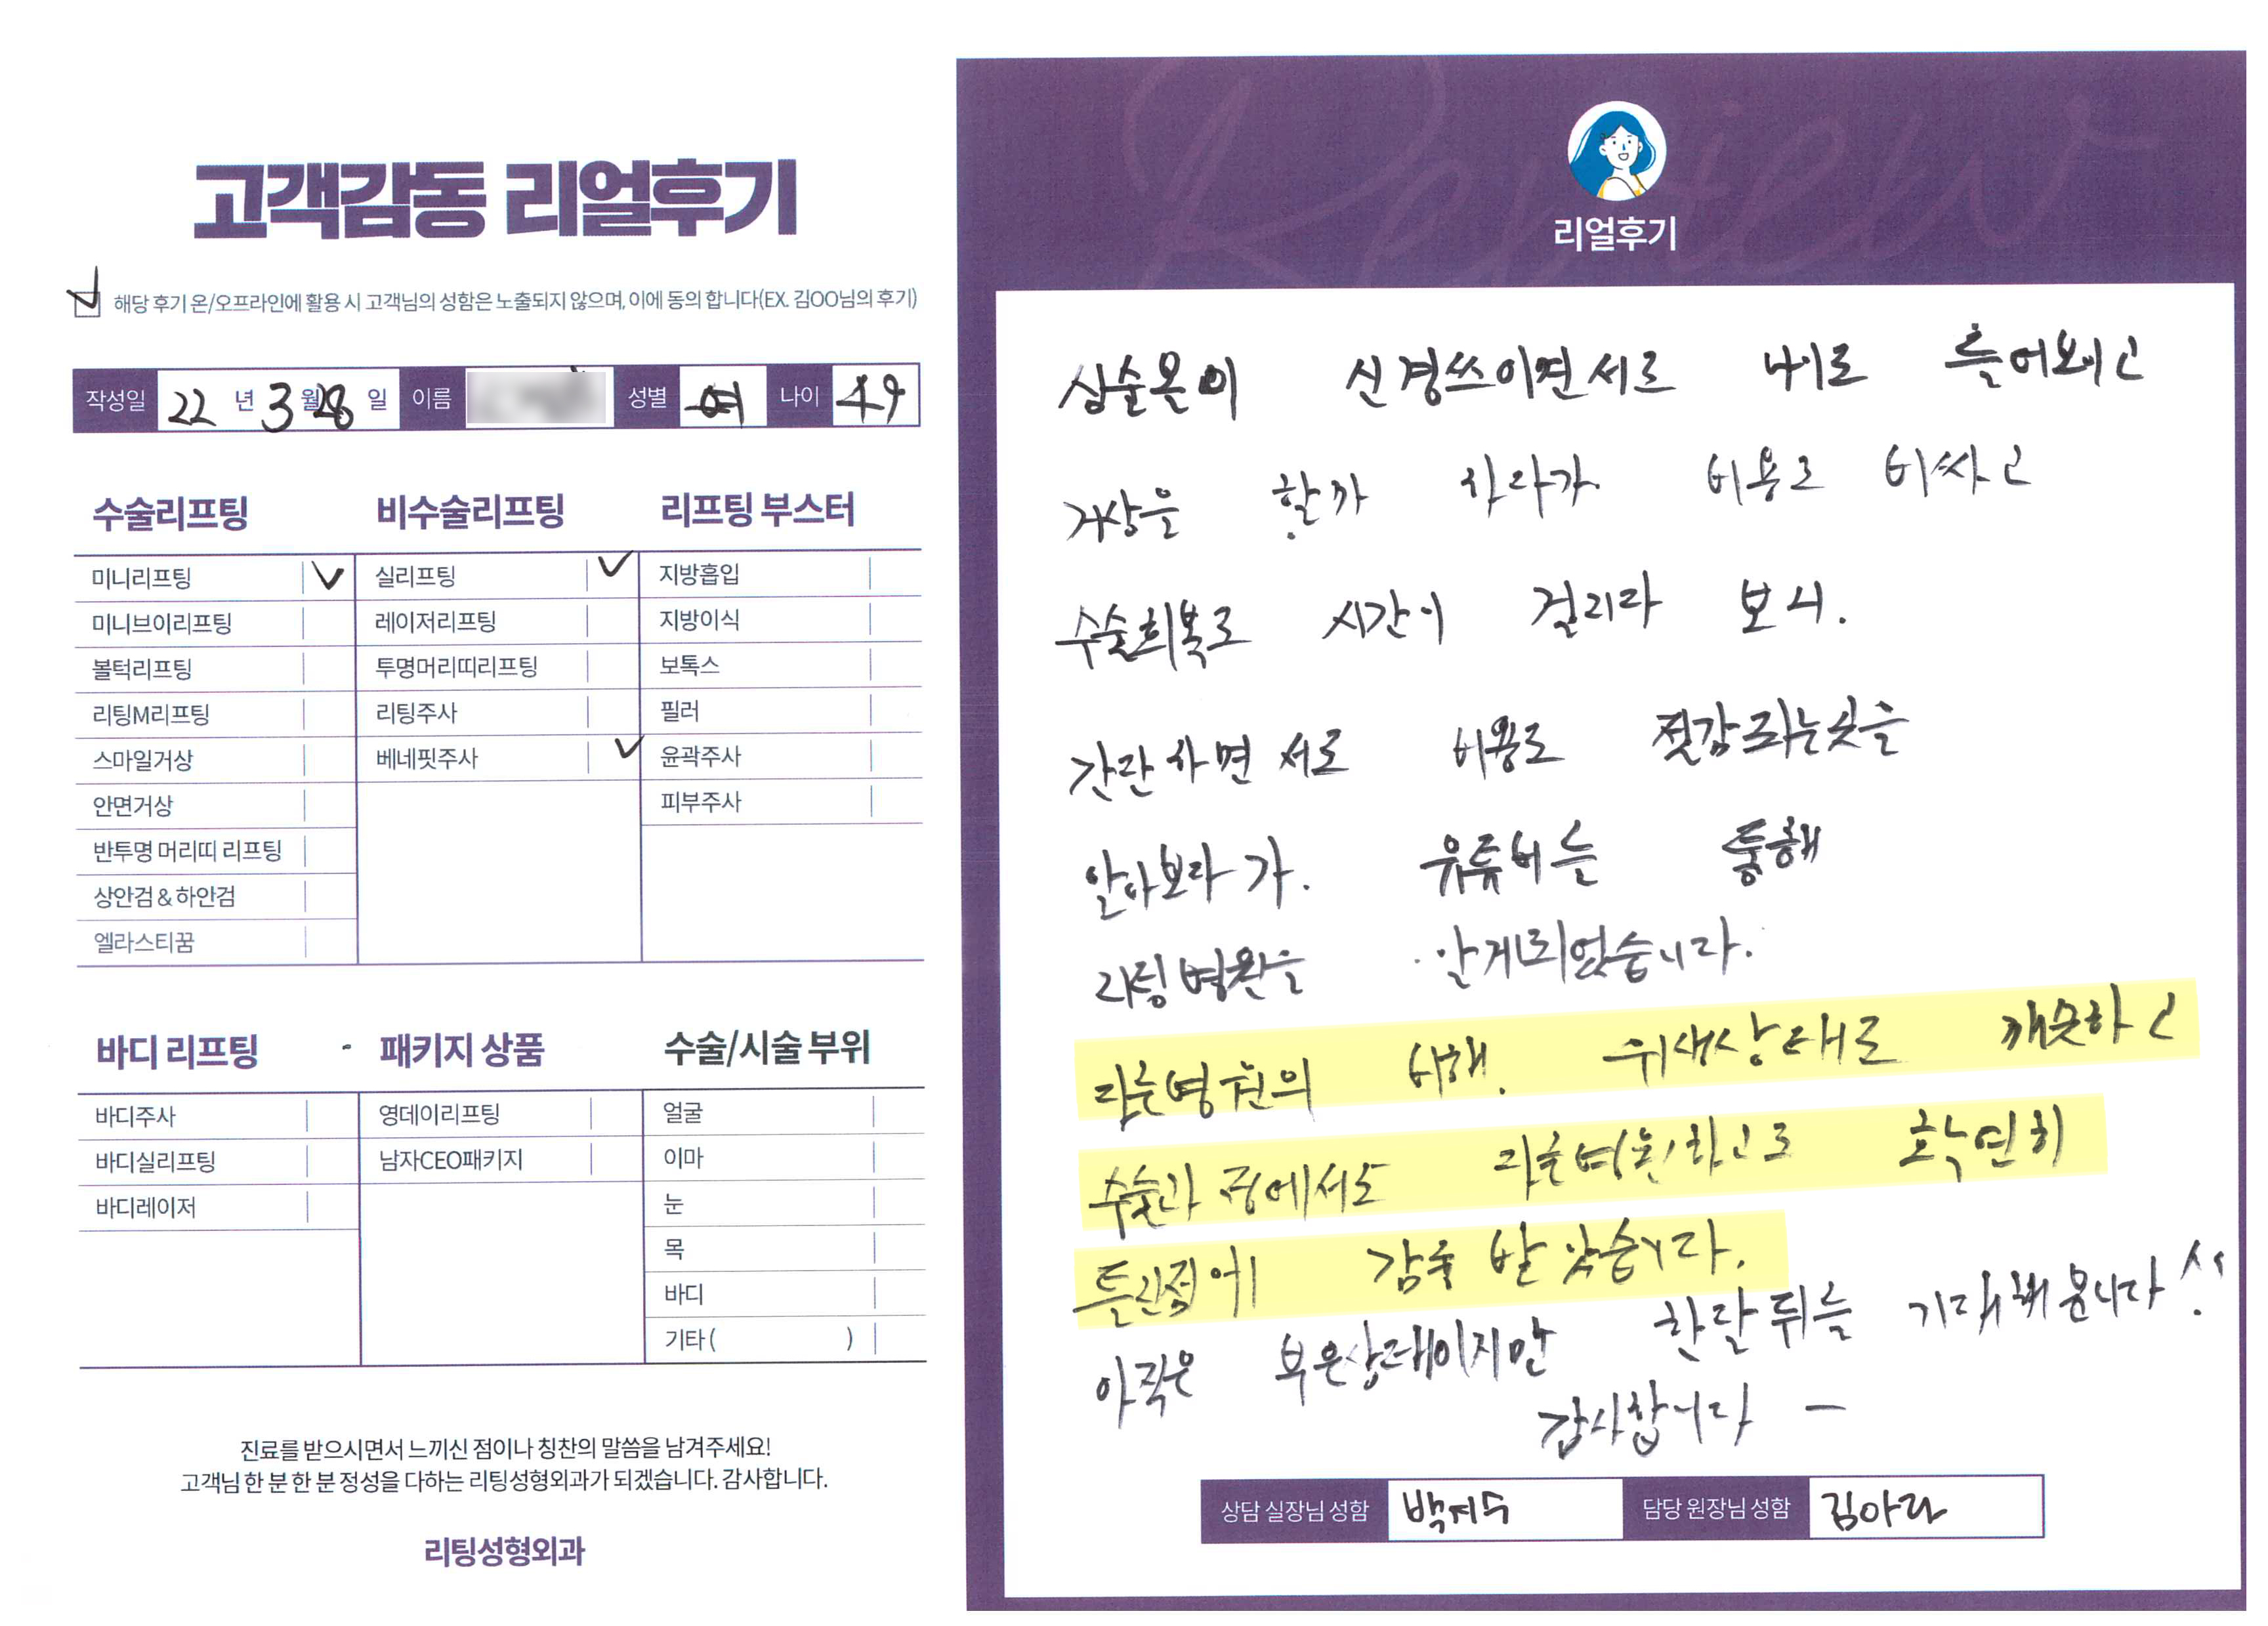 고객감동 리얼후기
해당 후기 온/오프라인에 활용 시 고객님의 성함은 노출되지 않으며, 이에 동의 합니다(EX. 김OO님의 후기)
작성일 22 년 3 월 28 일 이름 성별 여 나이 49
수술리프팅
미니리프팅
미니브이리프팅
볼턱리프팅
리팅M리프팅
스마일거상
안면거상
반투명 머리띠 리프팅
상안검 & 하안검
엘라스티꿈
비수술리프팅
실리프팅
레이저리프팅
투명머리띠리프팅
리팅주사
베네핏주사
리프팅 부스터
지방흡입
지방이식
보톡스
필러
윤곽주사
피부주사
바디 리프팅
바디주사
바디실리프팅
바디레이저
패키지 상품
영데이리프팅
남자CEO패키지
수술/시술 부위
얼굴
이마
눈
목
바디
기타 ( )
진료를 받으시면서 느끼신 점이나 칭찬의 말씀을 남겨주세요!
고객님 한 분 한 분 정성을 다하는 리팅성형외과가 되겠습니다. 감사합니다.
리팅성형외과
Review
리얼후기
심술온이 신경쓰이면서로 나이로 들어보이고
거상을 할까 하다가 비용도 비싸고
수술회복도 시간이 걸리다 보니.
간단하면서도 비용도 절감되는곳을
알아보다가. 유튜버를 통해
리팅병원을 알게되었습니다.
다른병원의 비해. 위생상태도 깨끗하고
수술과정에서도 다른병원하고도 확연히
틀린점에 감동 받았습니다.
아직은 부은상태이지만 한달뒤를 기대해봅니다
감사합니다 -
상담 실장님 성함 백지수 담당 원장님 성함 김아라